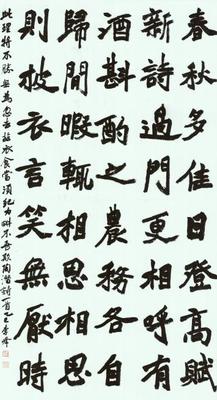 春秋多佳日登高賦
新詩過門更相呼有
酒斟酌之農務各自
歸閒暇輒相思相思
則披衣言笑無厭時
此理將不勝無為忽去茲衣食當須紀力畊不吾欺陶潛詩一首